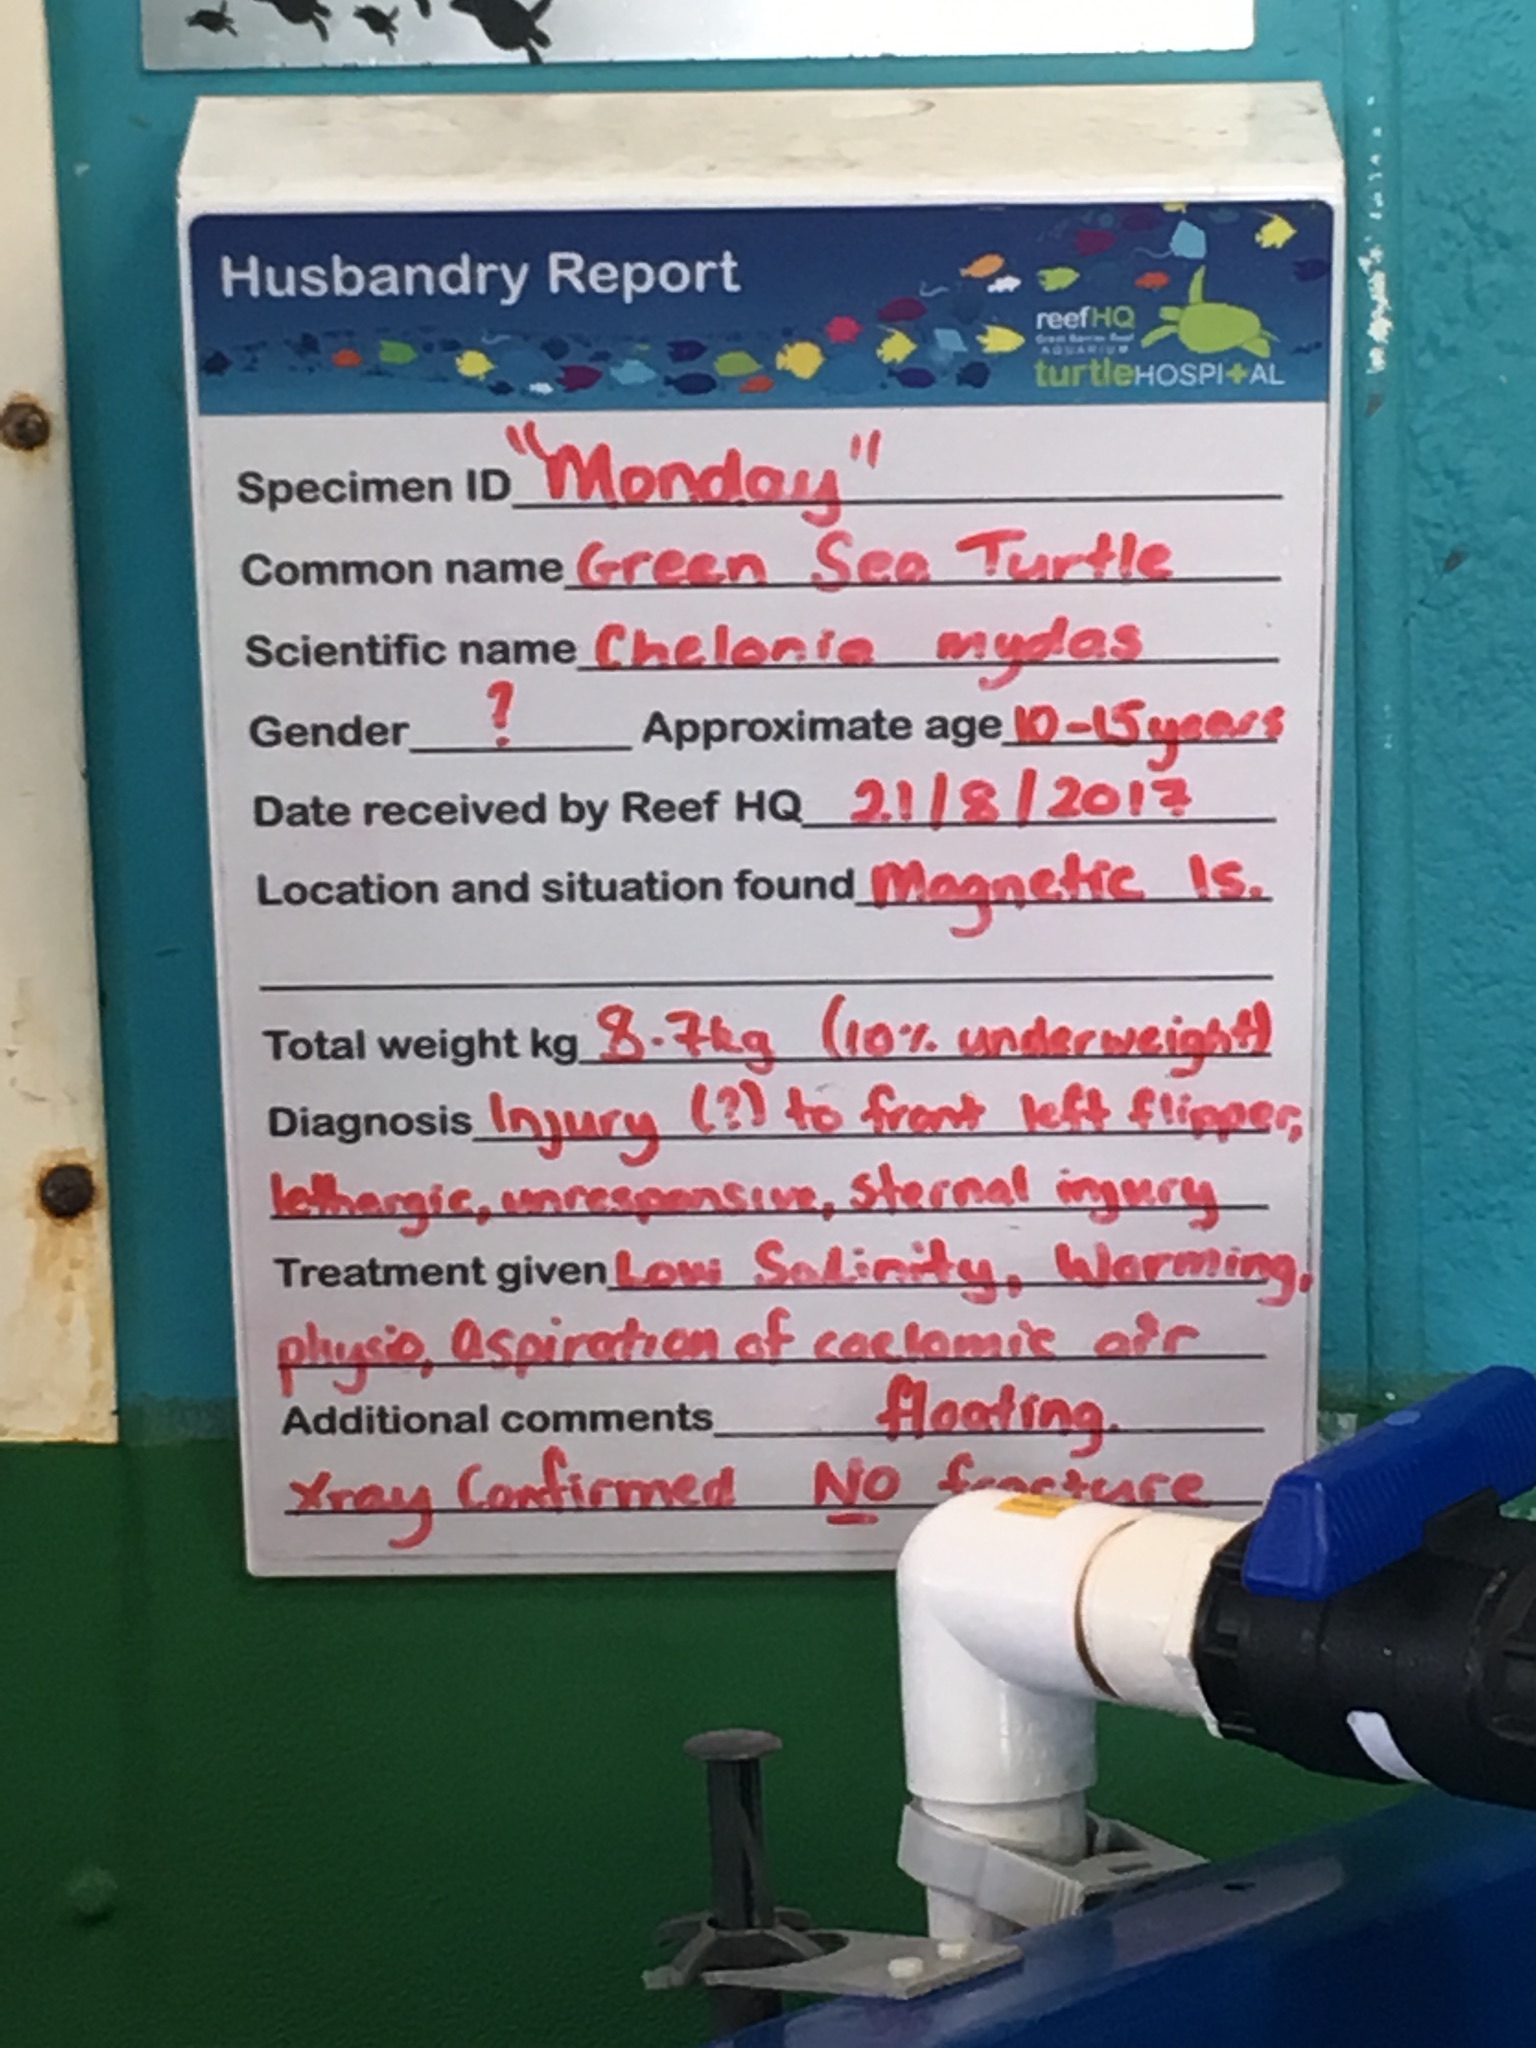 Husbandry Report
reefHQ
Great Barrier Reef
AQUARIUM
turtleHOSPITAL
Specimen ID "Monday"
Common name Green Sea Turtle
Scientific name Chelonia mydas
Gender ? Approximate age 10-15 years
Date received by Reef HQ 21/8/2017
Location and situation found Magnetic Is.
Total weight kg 8.7kg (10% underweight)
Diagnosis Injury (?) to front left flipper,
lethargic, unresponsive, sternal injury
Treatment given Low Salinity, Warming,
physio, aspiration of coelomic air
Additional comments floating.
Xray Confirmed NO fracture